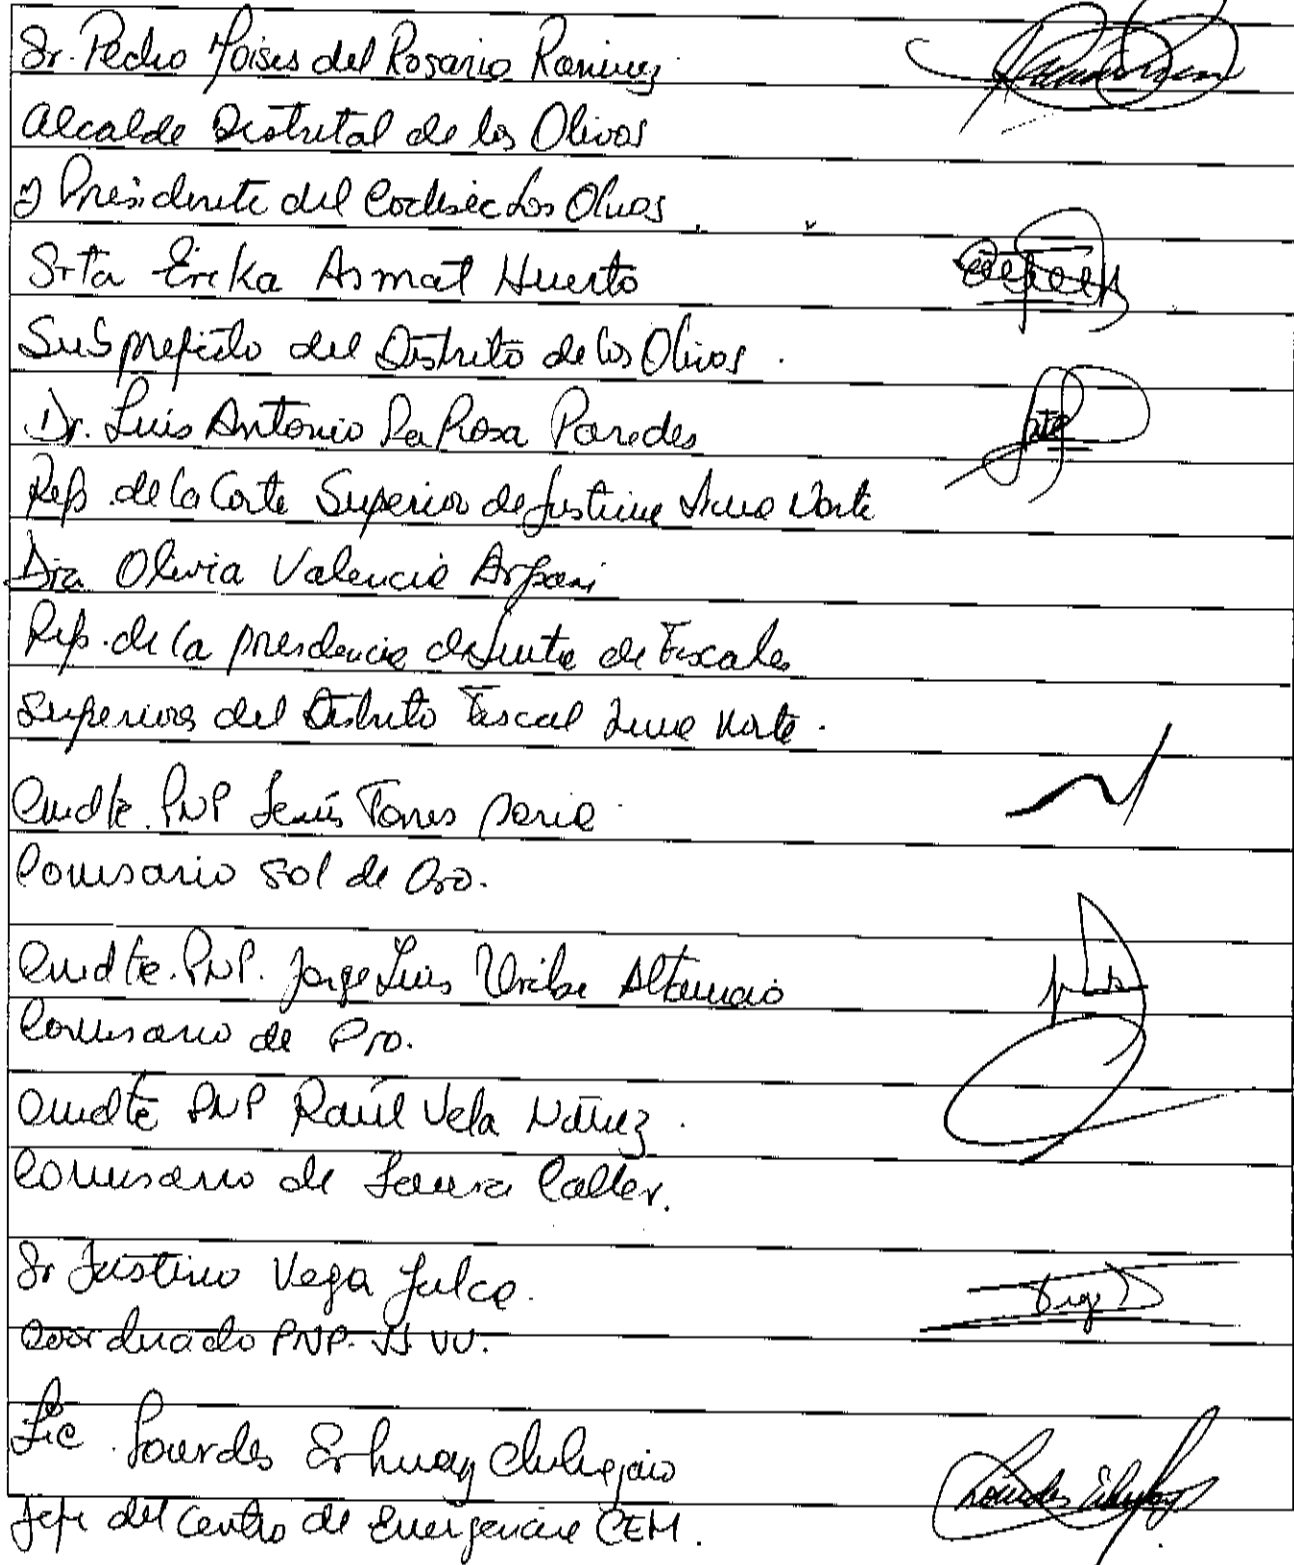 Sr. Pedro Moises del Rosario Ramirez
Alcalde Distrital de los Olivos
y Presidente del Codisec Los Olivos
Srta Erika Asmat Huerto
Subprefecto del Distrito de los Olivos.
Dr. Luis Antonio La Rosa Paredes
Rep. de la Corte Superior de Justicia Lima Norte
Dra Olivia Valencia
Rep. de la presidencia de Junta de Fiscales
Superiores del Distrito Fiscal Lima Norte.
Cmdte. PNP Jesús Torres
Comisario Sol de Oro.
Cmdte. PNP. Jorge Luis Uribe Altamirano
Comisario de Pro.
Cmdte PNP Raúl Vela Núñez.
Comisario de Laura Caller.
Sr Justino Vega Julca.
Coordinado PNP. JJ. VV.
Lic. Lourdes
Jefe del Centro de Emergencia CEM.